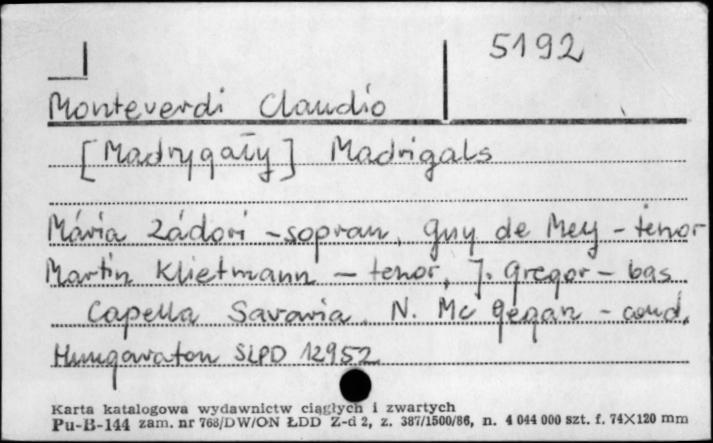 5192
Monteverdi Claudio
[Madrygały] Madrigals
Mária Zádori - sopran, Guy de Mey - tenor
Martin Klietmann - tenor, J. Gregor - bas
Capella Savaria, N. Mc Gegan - cond.
Hungaraton SLPD 12952
Karta katalogowa wydawnictw ciągłych i zwartych
Pu-B-144 zam. nr 768/DW/ON ŁDD Z-d 2, z. 387/1500/86, n. 4 044 000 szt. f. 74×120 mm